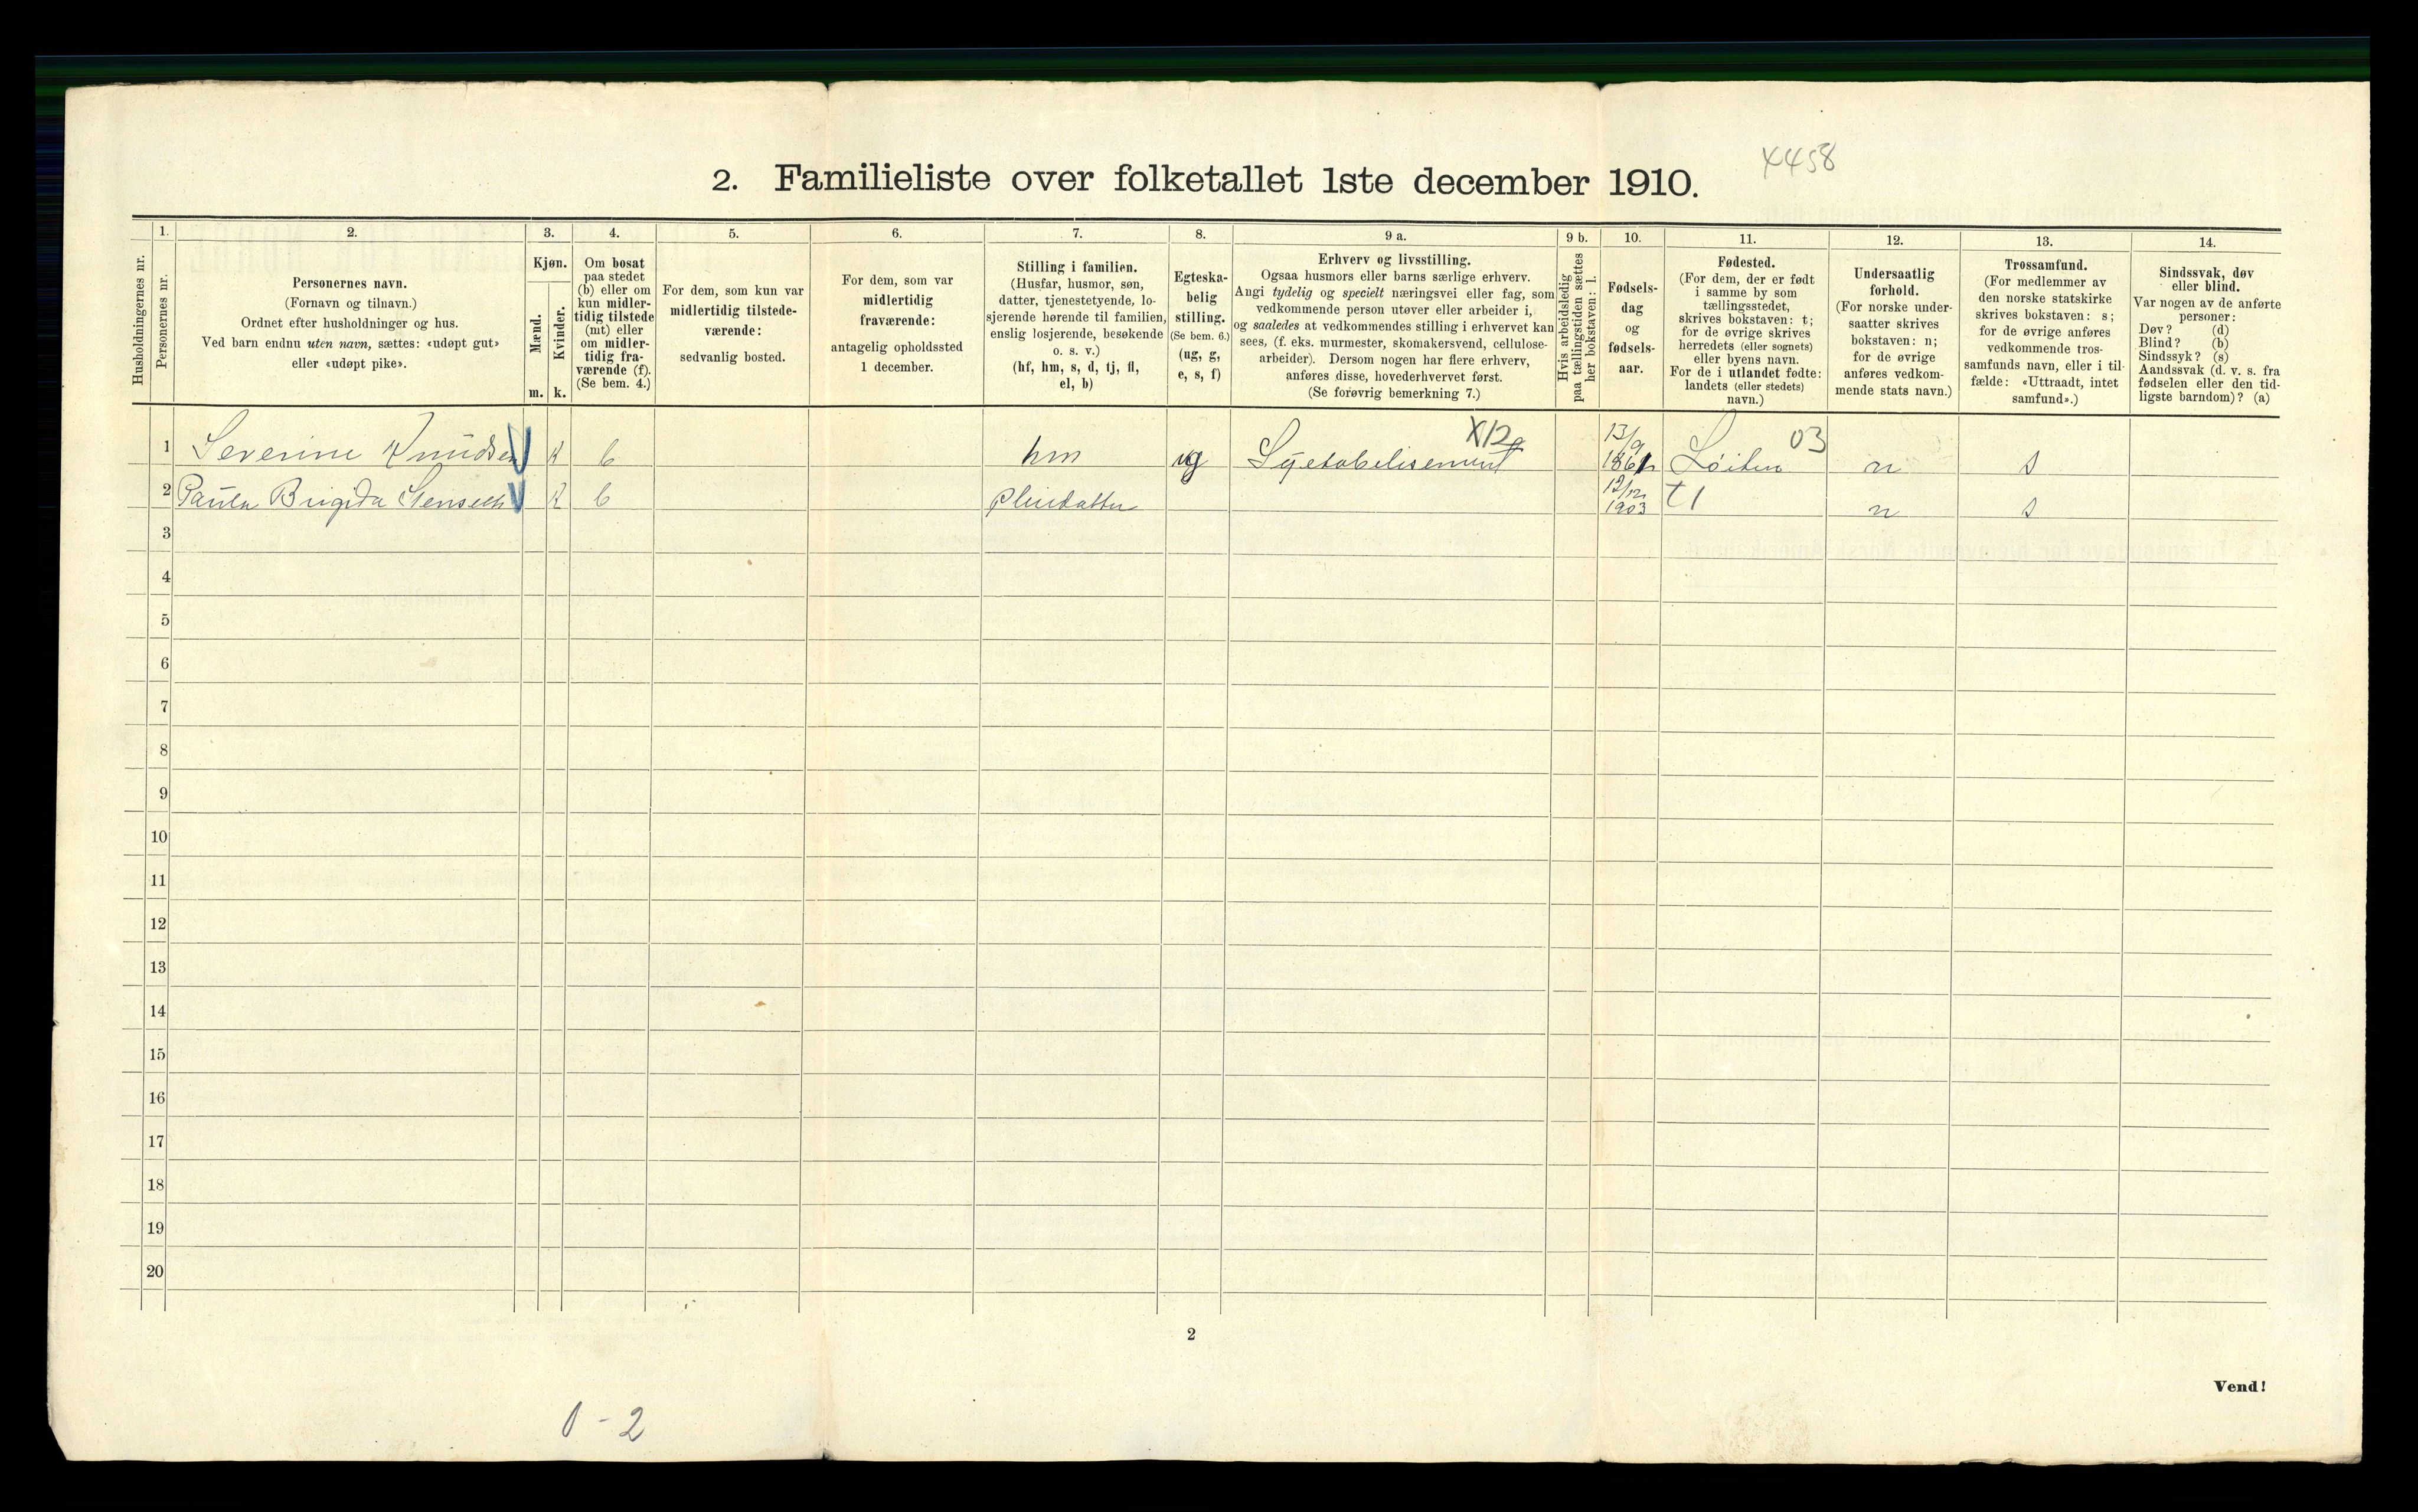 X458
2. Familieliste over folketallet 1ste december 1910.
Husholdningernes nr.
1.
Personernes nr.
2.
Personernes navn.
(Fornavn og tilnavn.)
Ordnet efter husholdninger og hus.
Ved barn endnu uten navn, sættes: «udøpt gut»
eller «udøpt pike».
3.
Kjøn.
Mænd.
Kvinder.
m. k.
4.
Om bosat
paa stedet
(b) eller om
kun midler-
tidig tilstede
(mt) eller
om midler-
tidig fra-
værende (f).
(Se bem. 4.)
5.
For dem, som kun var
midlertidig tilstede-
værende:
sedvanlig bosted.
6.
For dem, som var
midlertidig
fraværende:
antagelig opholdssted
1 december.
7.
Stilling i familien.
(Husfar, husmor, søn,
datter, tjenestetyende, lo-
sjerende hørende til familien,
enslig losjerende, besøkende
o. s. v.)
(hf, hm, s, d, tj, fl,
el, b)
8.
Egteska-
belig
stilling.
(Se bem. 6.)
(ug, g,
e, s, f)
9 a.
Erhverv og livsstilling.
Ogsaa husmors eller barns særlige erhverv.
Angi tydelig og specielt næringsvei eller fag, som
vedkommende person utøver eller arbeider i,
og saaledes at vedkommendes stilling i erhvervet kan
sees, (f. eks. murmester, skomakersvend, cellulose-
arbeider). Dersom nogen har flere erhverv,
anføres disse, hovederhvervet først.
(Se forøvrig bemerkning 7.)
9 b.
Hvis arbeidsledig
paa tællingstiden sættes
her bokstaven: l.
10.
Fødsels-
dag
og
fødsels-
aar.
11.
Fødested.
(For dem, der er født
i samme by som
tællingsstedet,
skrives bokstaven: t;
for de øvrige skrives
herredets (eller sognets)
eller byens navn.
For de i utlandet fødte:
landets (eller stedets)
navn.)
12.
Undersaatlig
forhold.
(For norske under-
saatter skrives
bokstaven: n;
for de øvrige
anføres vedkom-
mende stats navn.)
13.
Trossamfund.
(For medlemmer av
den norske statskirke
skrives bokstaven: s;
for de øvrige anføres
vedkommende tros-
samfunds navn, eller i til-
fælde: «Uttraadt, intet
samfund».)
14.
Sindssvak, døv
eller blind.
Var nogen av de anførte
personer:
Døv? (d)
Blind? (b)
Sindssyk? (s)
Aandssvak (d. v. s. fra
fødselen eller den tid-
ligste barndom)? (a)
1 Severine Knudsen K b hm ug Syetabelisement X12 13/9 1861 Løiten 03 n s
2 Paula Brigida K b pleiedatter 12/12 1903 t 1 n s
3
4
5
6
7
8
9
10
11
12
13
14
15
16
17
18
19
20
2
Vend!
0-2